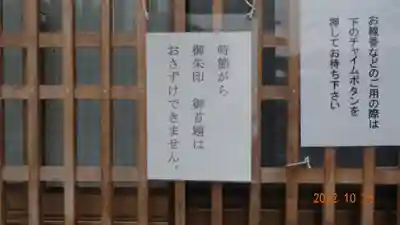 お線香などのご用の際は
下のチャイムボタンを
押してお待ち下さい
時節がら
御朱印 御首題は
おさずけできません。